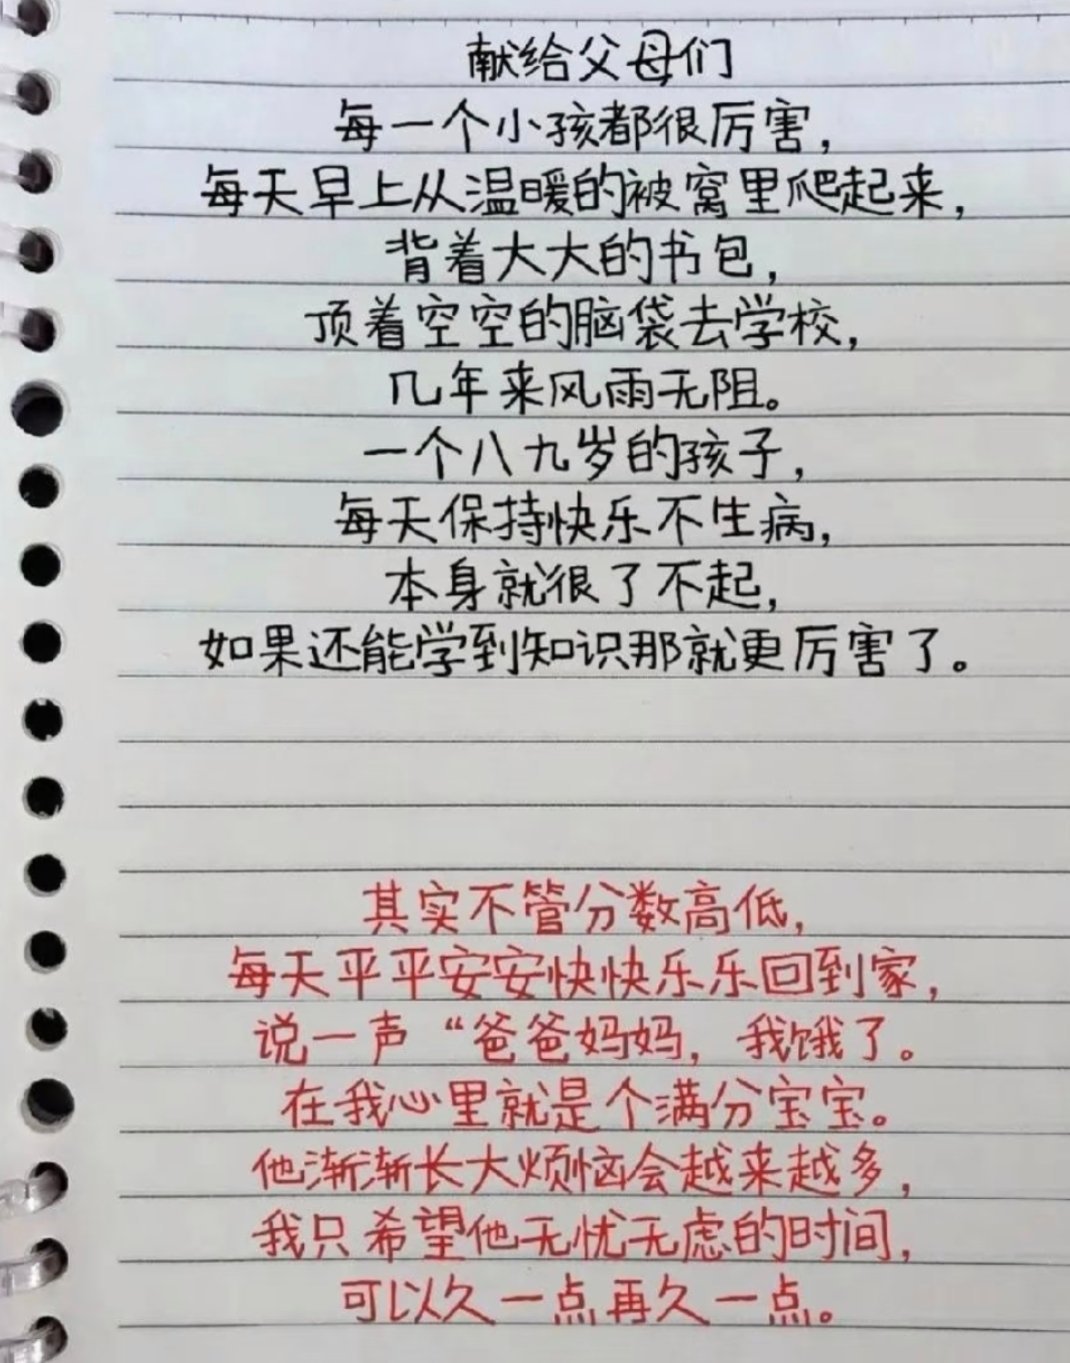 献给父母们
每一个小孩都很厉害，
每天早上从温暖的被窝里爬起来，
背着大大的书包，
顶着空空的脑袋去学校，
几年来风雨无阻。
一个八九岁的孩子，
每天保持快乐不生病，
本身就很了不起，
如果还能学到知识那就更厉害了。
其实不管分数高低，
每天平平安安快快乐乐回到家，
说一声“爸爸妈妈，我饿了。
在我心里就是个满分宝宝。
他渐渐长大烦恼会越来越多，
我只希望他无忧无虑的时间，
可以久一点再久一点。